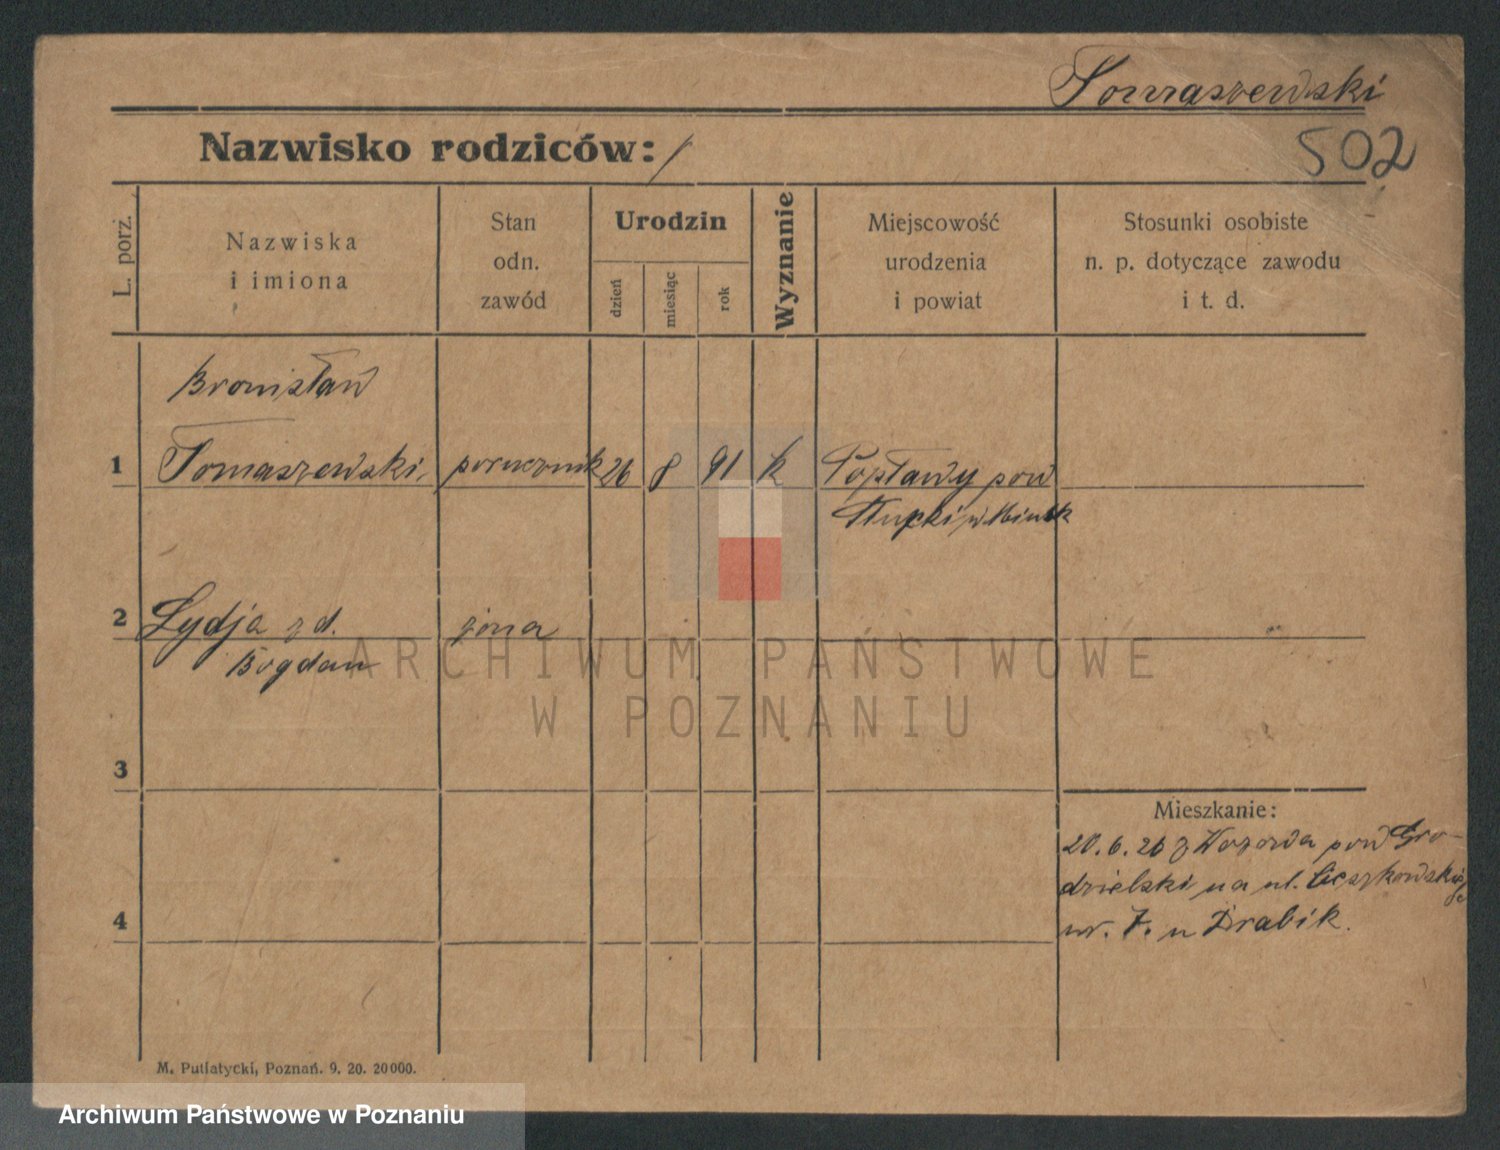 Tomaszewski
Nazwisko rodziców: /
502
L. porz.
Nazwiska
i imiona
Stan
odn.
zawód
Urodzin
dzień
miesiąc
rok
Wyznanie
Miejscowość
urodzenia
i powiat
Stosunki osobiste
n. p. dotyczące zawodu
i t. d.
Bronisław
1 Tomaszewski porucznik 26 8 91 k Popławy pow
2 Lydja z d. żona
Bogdan
3
4
Mieszkanie:
20.6.26 z pow Gro-
dzielski na ul. Cieszkowskiego
nr. 7. u Drabik.
M. Putiatycki, Poznań. 9. 20. 20000.
ARCHIWUM PAŃSTWOWE
W POZNANIU
Archiwum Państwowe w Poznaniu